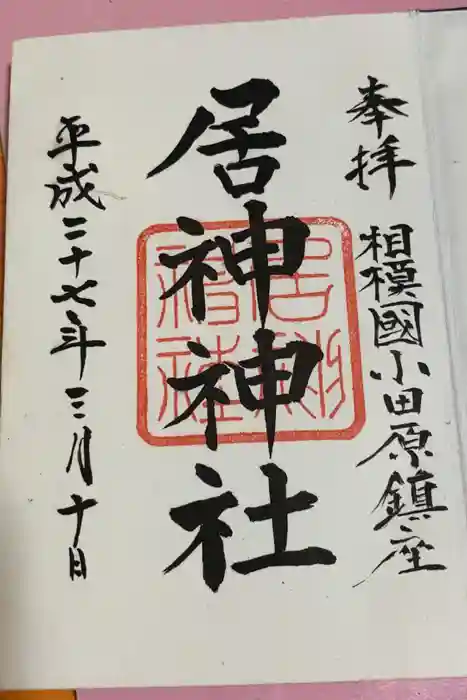 奉拝
相模國小田原鎮座
居神神社
居神神社
平成二十七年三月十日